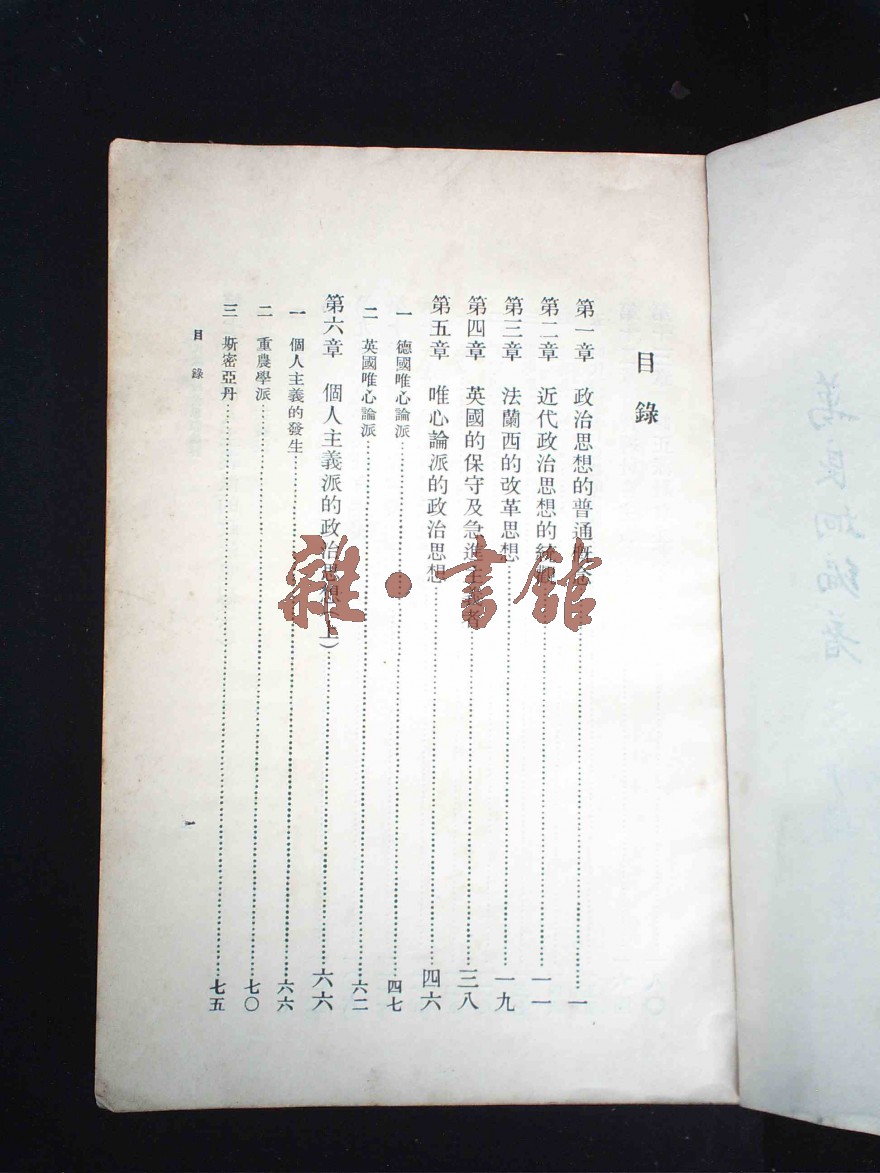 目錄
第一章 政治思想的普通概念……一
第二章 近代政治思想的統觀……一一
第三章 法蘭西的改革思想……一九
第四章 英國的保守及急進主義者……三八
第五章 唯心論派的政治思想……四六
一 德國唯心論派……四七
二 英國唯心論派……六二
第六章 個人主義派的政治思想（上）……六六
一 個人主義的發生……六六
二 重農學派……七〇
三 斯密亞丹……七五
目錄
一
雜·書館